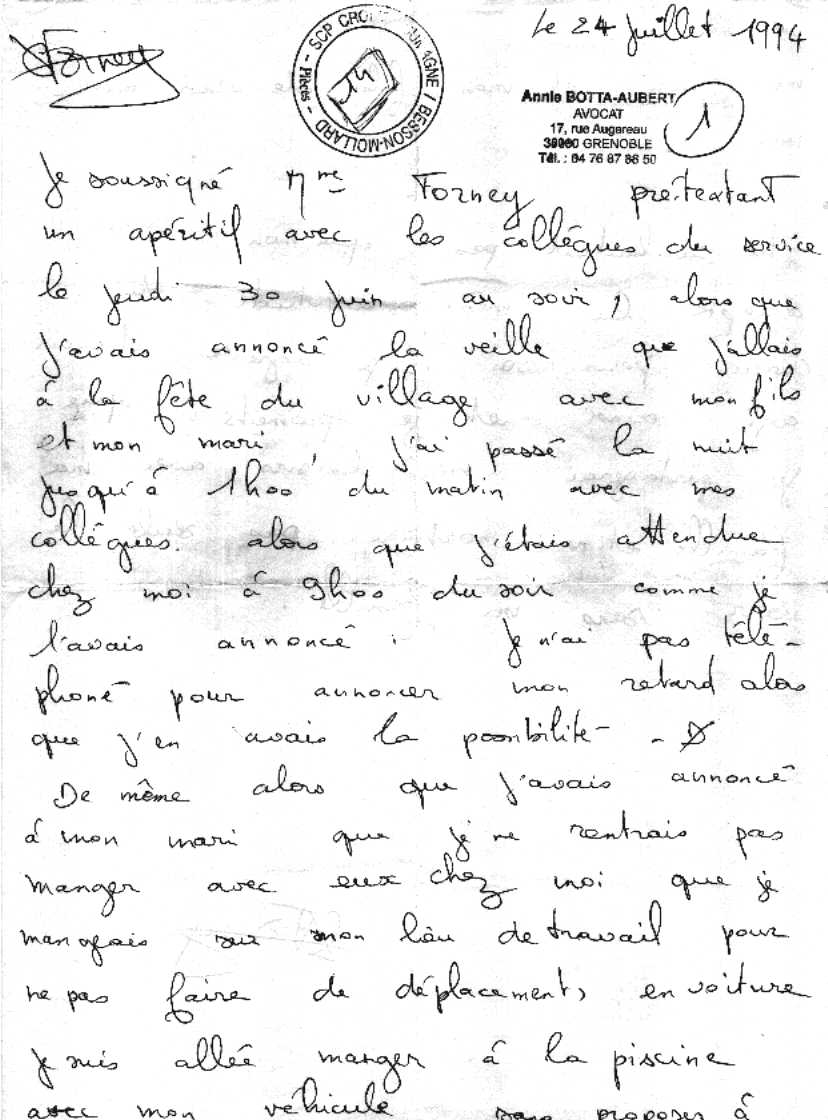 Le 24 Juillet 1994
Forney
SCP CRO
AGNE / BESSON-MOLLARD
- Pièces -
14
Annie BOTTA-AUBERT
AVOCAT
17, rue Augereau
38000 GRENOBLE
Tél. : 04 76 87 86 50
1
Je soussigné Mme Forney prétextant
un apéritif avec les collégues du service
le jeudi 30 juin au soir, alors que
j'avais annoncé la veille que j'allais
à la fête du village avec mon fils
et mon mari, j'ai passé la nuit
jusqu'à 1h00 du matin avec mes
collègues. alors que j'étais attendue
chez moi à 9h00 du soir comme je
l'avais annoncé. Je n'ai pas télé-
phoné pour annoncer mon retard alors
que j'en avais la possibilité -
De même alors que j'avais annoncé
à mon mari que je ne rentrais pas
manger avec eux chez moi que je
mangeais sur mon lieu de travail pour
ne pas faire de déplacements en voiture
je suis allée manger à la piscine
avec mon véhicule sans proposer à